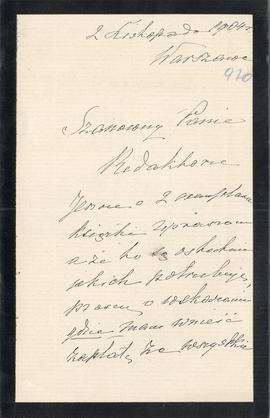 2 Listopada 1904 r.
Warszawa
920
Szanowny Panie
Redaktorze
Jeszcze o 2 
książki upraszam
a że to są ostatnie
jakich potrzebuję
proszę o wskazanie
gdzie mam wnieść
zapłatę za wszystkie